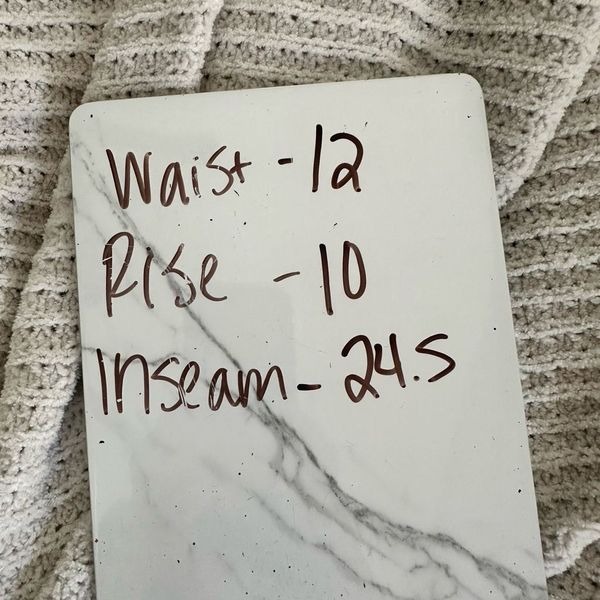 Waist - 12
Rise - 10
Inseam - 24.5